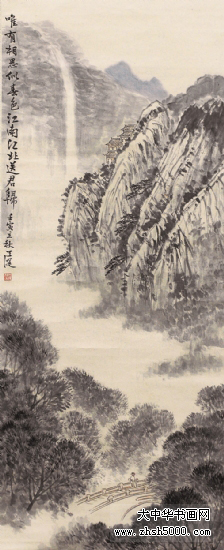 唯有相思似春色江南江北送君歸
壬寅之秋
大中华书画网
www.zhsh5000.com